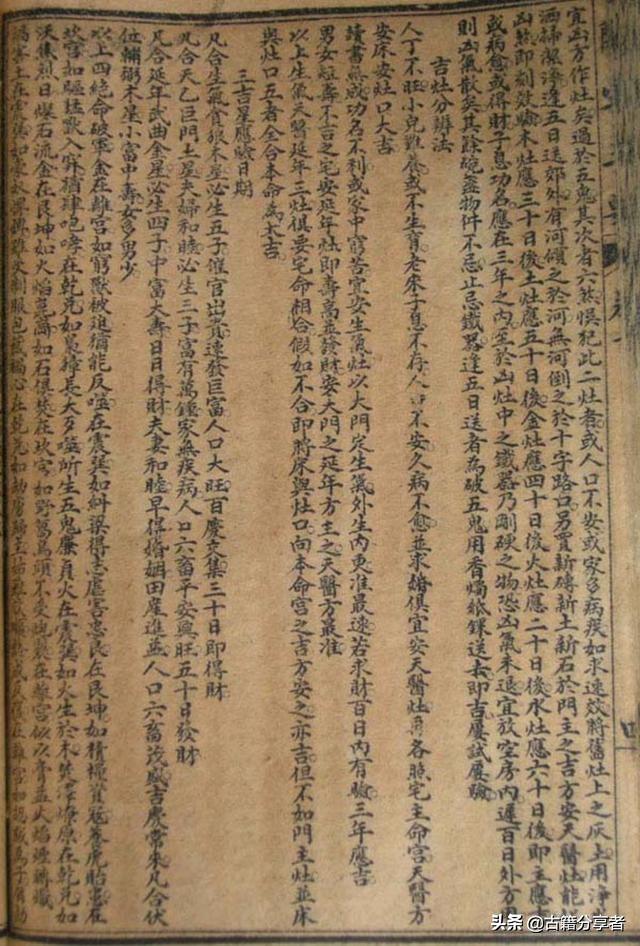 宜凶方作灶矣過於五鬼其次者六煞悞犯此二灶者或人口不安或家多病疾如求速效將舊灶上之灰土用淨
洒掃潔淨逢五日送郊外有河傾之於河無河倒之於十字路口另買新磚新土新石於門主之吉方安天醫灶能
凶煞即刻效驗木灶應三十日後土灶應五十日後金灶應四十日後火灶應二十日後水灶應六十日後即主應
或病愈或得財子息功名應在三年之內至於凶灶中之鐵器乃剛硬之物恐凶氣未退宜放空房內遲百日外方用
則凶氣散矣其餘碗盞物件不忌止忌鐵器逢五日送者為破五鬼用香燭紙錁送去即吉屢試屢驗
吉灶分辨法
人丁不旺小兒難養或不生育老來子息不存人口不安久病不愈並求婚俱宜安天醫灶再各照宅主命宮天醫方
安床安灶口大吉
讀書無成功名不利或家中窮苦宜安生氣灶以大門定生氣外生內更准最速若求財百日內有驗三年應吉
男女短壽不吉之宅安延年灶即壽高並發財安大門之延年方主之天醫方最准
以上生氣天醫延年三灶俱要宅命相合假如不合即將床與灶口向本命宮之吉方安之亦吉但不如門主灶並床
與灶口五者全合本命為大吉
三吉星應驗日期
凡合生氣貪狼木星必生五子催官出貴速發巨富人口大旺百慶交集三十日即得財
凡合天乙巨門土星夫婦和睦必生三子富有萬鍾家無疾病人口六畜平安興旺五十日發財
凡合延年武曲金星必生四子中富大壽日日得財夫妻和睦早得婚姻田產進益人口六畜茂盛吉慶常來凡合伏
位輔弼木星小富中壽女多男少
以上四絕命破軍金在離宮如窮獸被追猶能反噬在震巽如糾梁得志虐害忠良在艮坤如積糧資寇養虎貽害在
坎宮如驅猛獸入穽猶肆咆哮在乾兌如梟獐長大歹噬所生五鬼廉貞火在震巽如火生於木焚澤燎原在乾兌如
沃焦烈日爍石流金在艮坤如火焰崑岡如石俱焚在坎宮如野葛烏頭不受炮製在離宮似以膏益火焰煙蔣熾